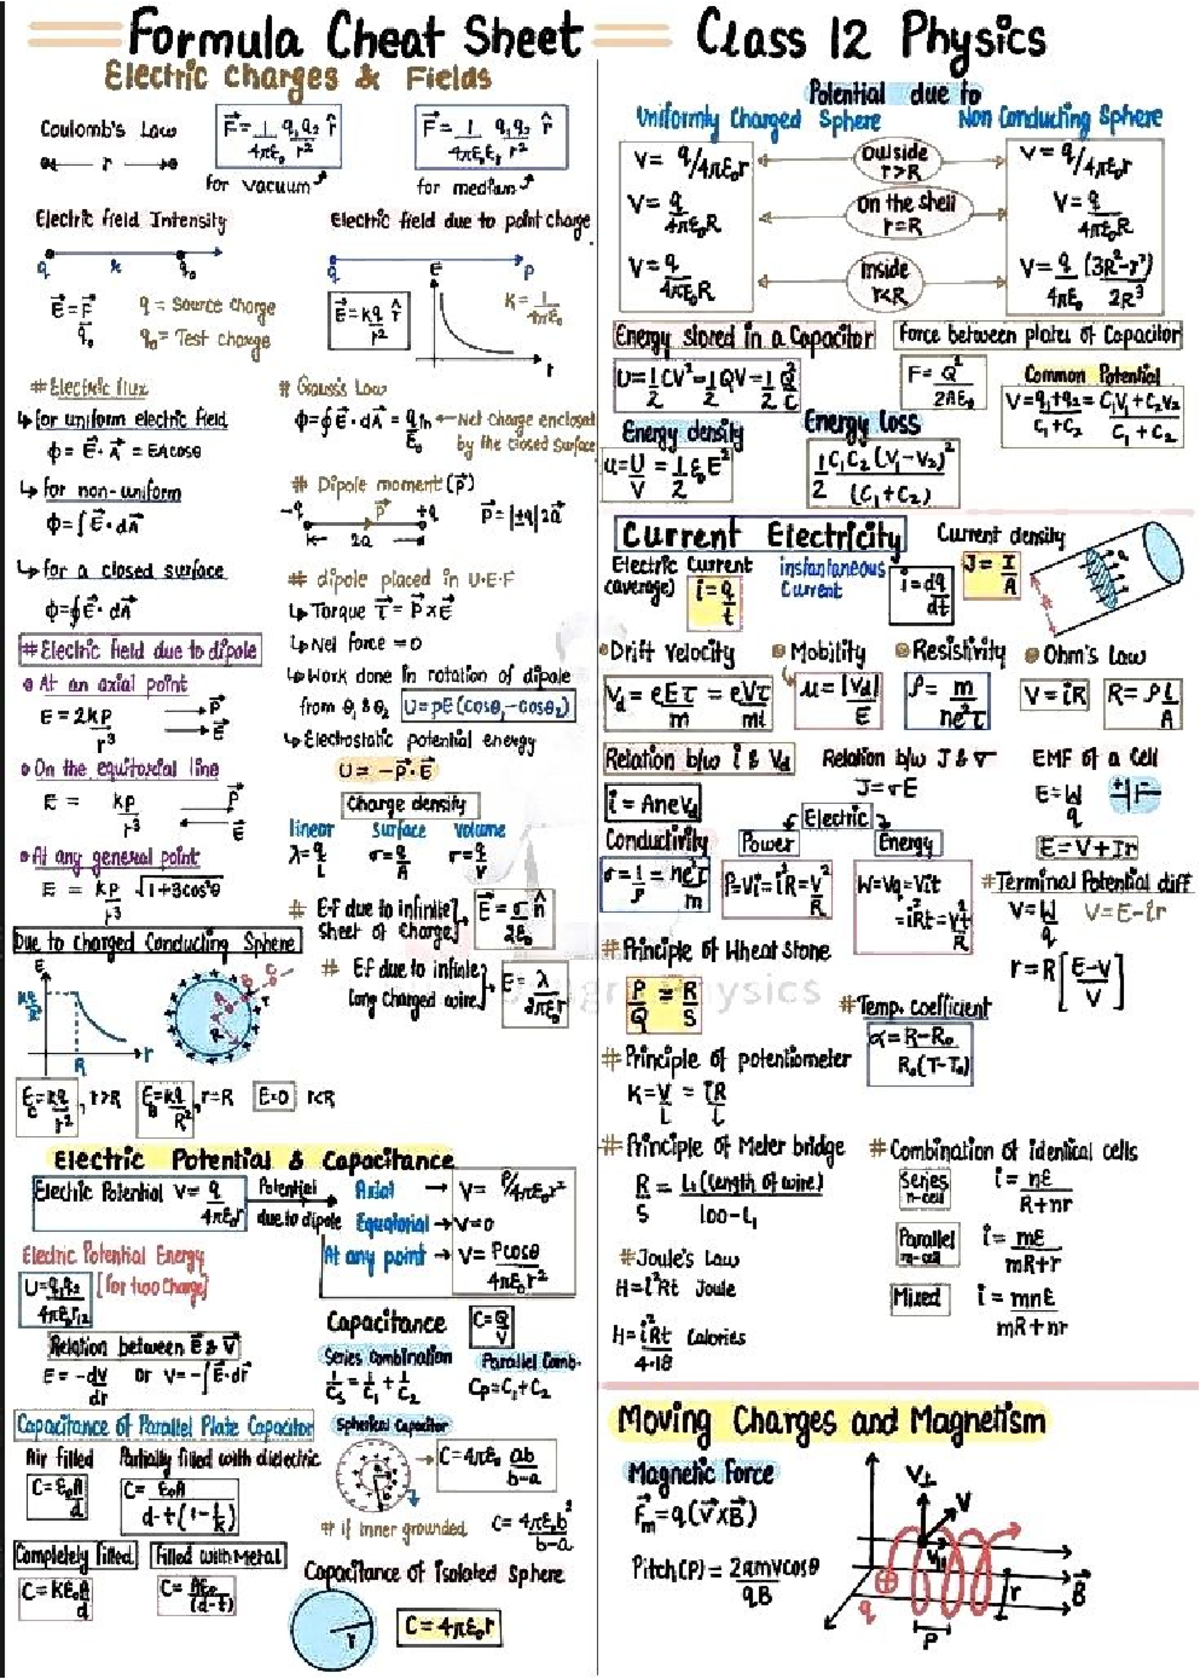 Formula Cheat Sheet
Class 12 Physics
Electric charges & Fields
Coulomb's Law
F⃗ = 1/4πε₀ q₁q₂/r² r̂
for vacuum
F⃗ = 1/4πε₀εr q₁q₂/r² r̂
for medium
r
Electric field Intensity
q x q₀
E⃗ = F⃗/q₀
q = Source charge
q₀ = Test charge
Electric field due to point charge
q P
E⃗ = kq/r² r̂
E
r
K = 1/4πε₀
# Electric flux
↳ for uniform electric field
ϕ = E⃗ · A⃗ = EA cosθ
↳ for non-uniform
ϕ = ∫E⃗ · dA⃗
↳ for a closed surface
ϕ = ∮E⃗ · dA⃗
# Gauss's Law
ϕ = ∮E⃗ · dA⃗ = qin/ε₀ ← Net charge enclosed
by the closed surface
# Dipole moment (P⃗)
-q P⃗ +q
2a
P⃗ = |±q|2a⃗
# dipole placed in U.E.F
↳ Torque τ⃗ = P⃗ × E⃗
↳ Net force = 0
↳ Work done in rotation of dipole
from θ₁ & θ₂ U = pE(cosθ₁ - cosθ₂)
↳ Electrostatic potential energy
U = -P⃗·E⃗
# Electric field due to dipole
At an axial point
E = 2kp/r³
P⃗
E⃗
On the equitorial line
E = kp/r³
P⃗
E⃗
At any general point
E = kp/r³ √1+3cos²θ
Charge density
linear surface volume
λ = q/L σ = q/A σ = q/V
# E.f due to infinite
Sheet of Charge
E⃗ = σ/2ε₀ n̂
# E.f due to infinite
long charged wire
E = λ/2πε₀r
Due to charged Conducting Sphere
E
R
r
E = kq/r², r>R
E = kq/R², r=R
E=0 r<R
Electric Potential & Capacitance
Electric Potential V = q/4πε₀r
Potential
due to dipole
Axial → V = P/4πε₀r²
Equatorial → V=0
At any point → V = Pcosθ/4πε₀r²
Electric Potential Energy
U = q₁q₂/4πε₀r₁₂ [for two charge]
Relation between E⃗ & V⃗
E = -dV/dr or V = -∫E⃗·dr⃗
Capacitance C = Q/V
Series Combination
1/Cs = 1/C₁ + 1/C₂
Parallel Comb.
Cp = C₁+C₂
Capacitance of Parallel Plate Capacitor
Air filled
C = ε₀A/d
Partially filled with dielectric
C = ε₀A/d-t(1-1/k)
Completely filled
C = kε₀A/d
Filled with Metal
C = Aε₀/(d-t)
Spherical Capacitor
C = 4πε₀ ab/b-a
# if inner grounded C = 4πε₀b²/b-a
Capacitance of Isolated Sphere
r
C = 4πε₀r
Potential due to
Uniformly Charged Sphere
Non Conducting Sphere
V = q/4πε₀r
Outside
r>R
V = q/4πε₀r
V = q/4πε₀R
On the shell
r=R
V = q/4πε₀R
V = q/4πε₀R
Inside
r<R
V = q/4πε₀ (3R²-r²)/2R³
Energy stored in a Capacitor
U = 1/2 CV² = 1/2 QV = 1/2 Q²/C
Force between plates of Capacitor
F = Q²/2Aε₀
Common Potential
V = q₁+q₂/C₁+C₂ = C₁V₁+C₂V₂/C₁+C₂
Energy density
u = U/V = 1/2 ε₀E²
Energy loss
1/2 C₁C₂(V₁-V₂)²/(C₁+C₂)
Current Electricity
Electric Current
(average)
i = q/t
instantaneous
Current
i = dq/dt
Current density
J = I/A
Drift Velocity
Vd = eEτ/m = eVτ/ml
Mobility
μ = |Vd|/E
Resistivity
ρ = m/ne²τ
Ohm's Law
V = iR
R = ρl/A
Relation b/w i & Vd
i = AneVd
Relation b/w J & σ
J = σE
EMF of a Cell
E = W/q
E = V+Ir
Conductivity
σ = 1/ρ = ne²τ/m
Electric
Power
P = Vi = i²R = V²/R
Energy
W = Vq = Vit
= i²Rt = V²t/R
# Terminal Potential diff
V = W/q V = E-ir
r = R[E-V/V]
# Principle of Wheat stone
P/Q = R/S
# Temp. coefficient
α = R-R₀/R₀(T-T₀)
# Principle of potentiometer
K = V/L = IR/L
# Principle of Meter bridge
R/S = L₁(length of wire)/100-L₁
# Combination of identical cells
Series
n-cell
i = nE/R+nr
Parallel
m-cell
i = mE/mR+r
Mixed
i = mnE/mR+nr
# Joule's Law
H = i²Rt Joule
H = i²Rt/4.18 Calories
Moving Charges and Magnetism
Magnetic force
F⃗m = q(V⃗×B⃗)
Pitch(P) = 2πmvcosθ/qB
V⊥
V
V||
r
B⃗
q
P